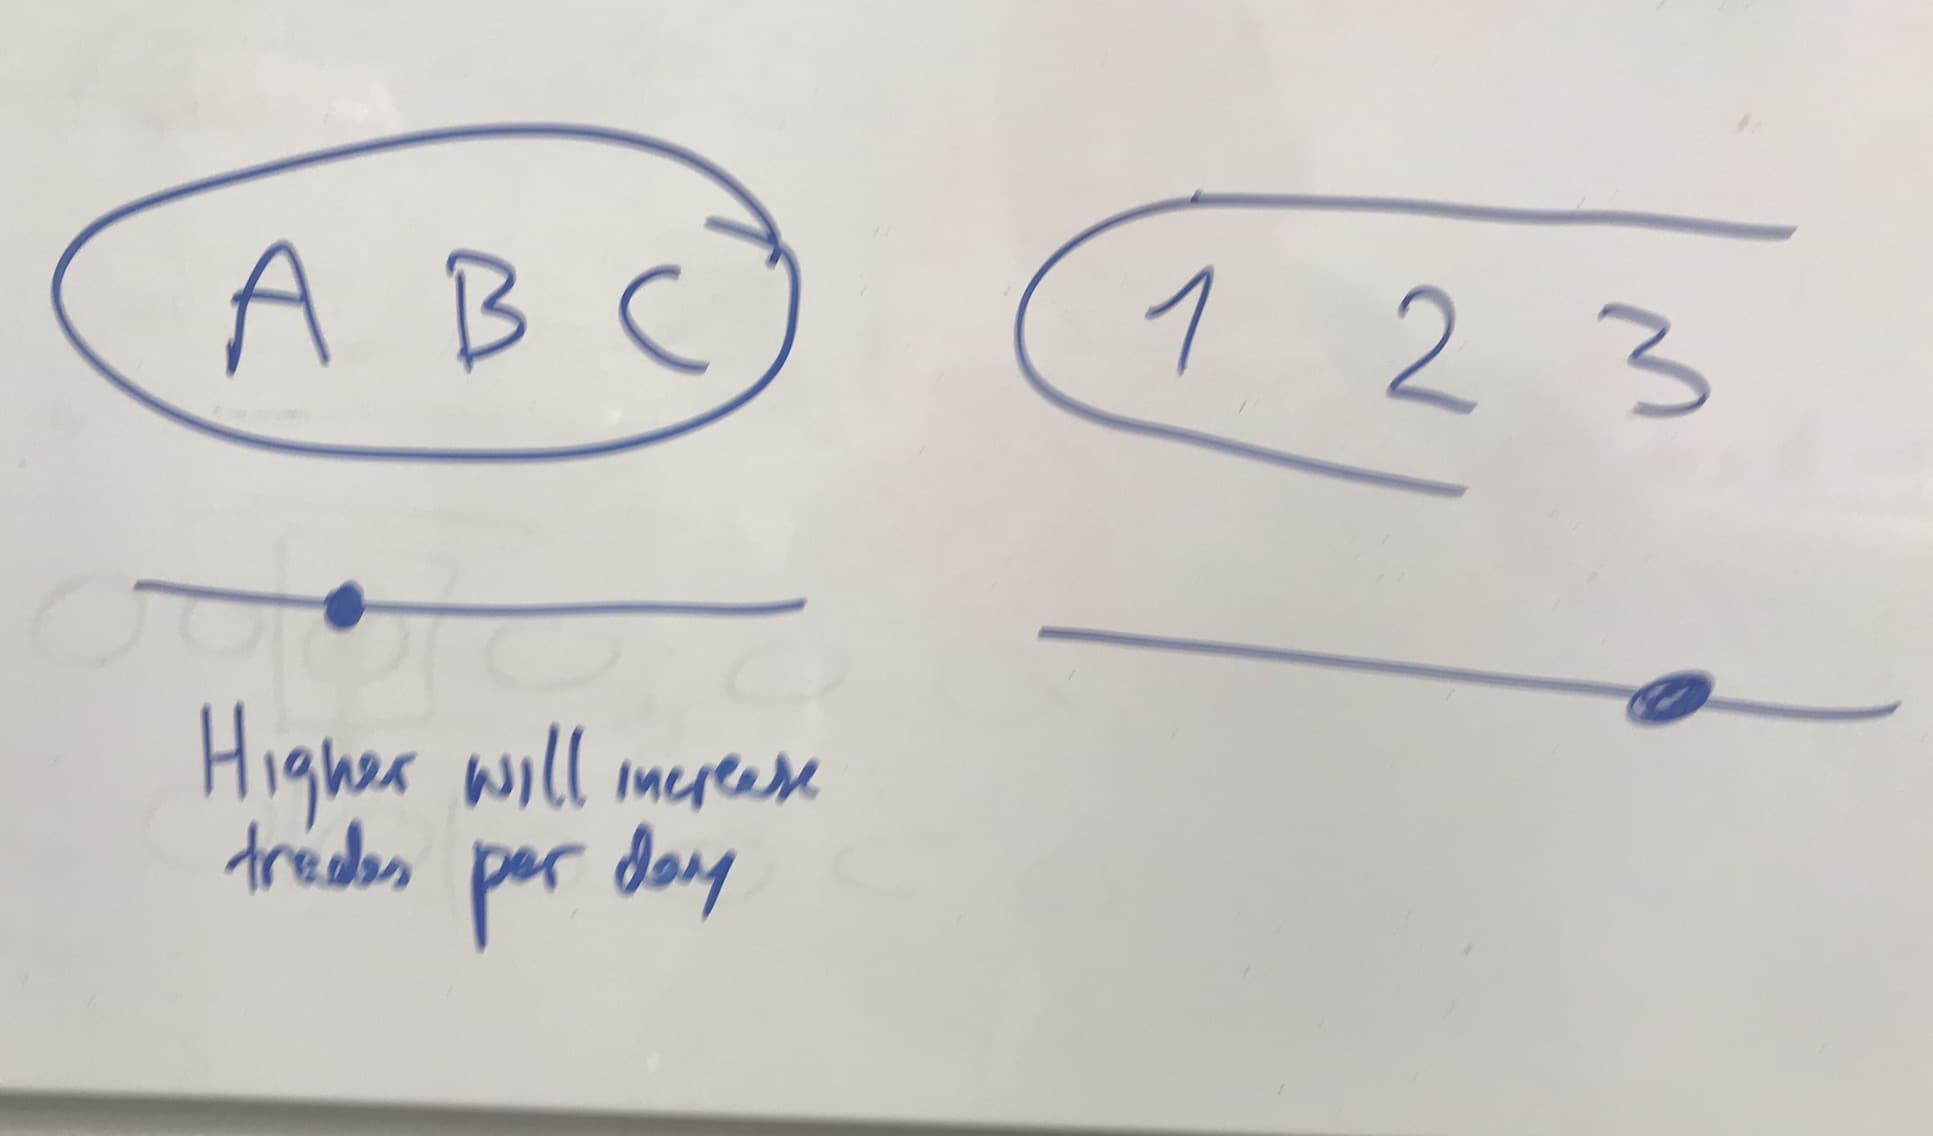 A B C
1 2 3
Higher will increase
trades per day